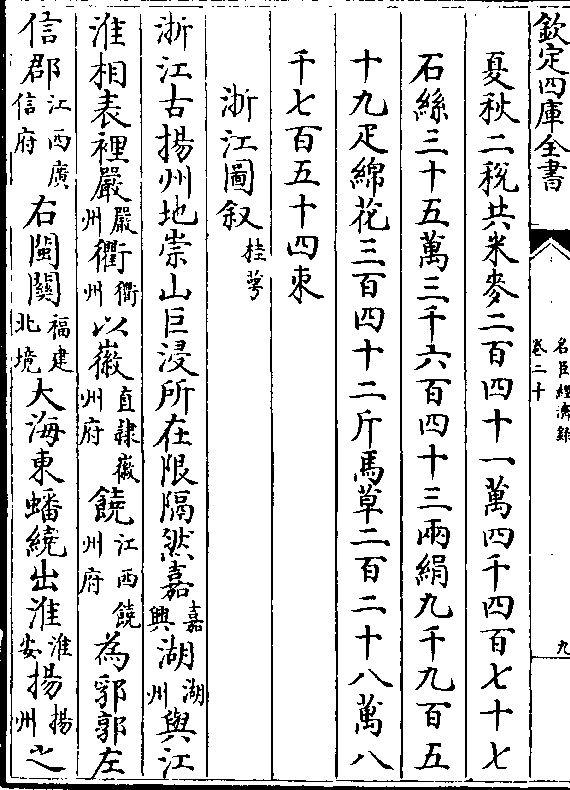 欽定四庫全書
名臣經濟錄
卷二十
九
夏秋二稅共米麥二百四十一萬四千四百七十七
石絲三十五萬三千六百四十三兩絹九千九百五
十九疋綿花三百四十二斤馬草二百二十八萬八
千七百五十四束
浙江圖叙 桂萼
浙江古揚州地崇山巨浸所在限隔然嘉嘉興湖湖州與江
淮相表裡嚴嚴州衢衢州以徽直隸徽州府饒江西饒州府為郛郭左
信郡江西廣信府右閩關福建北境大海東蟠繞出淮淮安揚揚州之